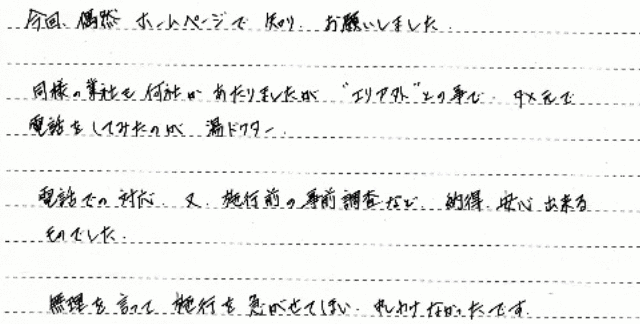 今回、偶然 ホームページで 知り、お願いしました。
同様の業社を 何社か あたりましたが "エリア外" との事で、ダメ元で
電話を してみたのが 湯ドクター。
電話での 対応、又、施行前の 事前調査など、納得、安心 出来る
ものでした。
無理を 言って 施行を 急がせてしまい、申しわけなかったです。